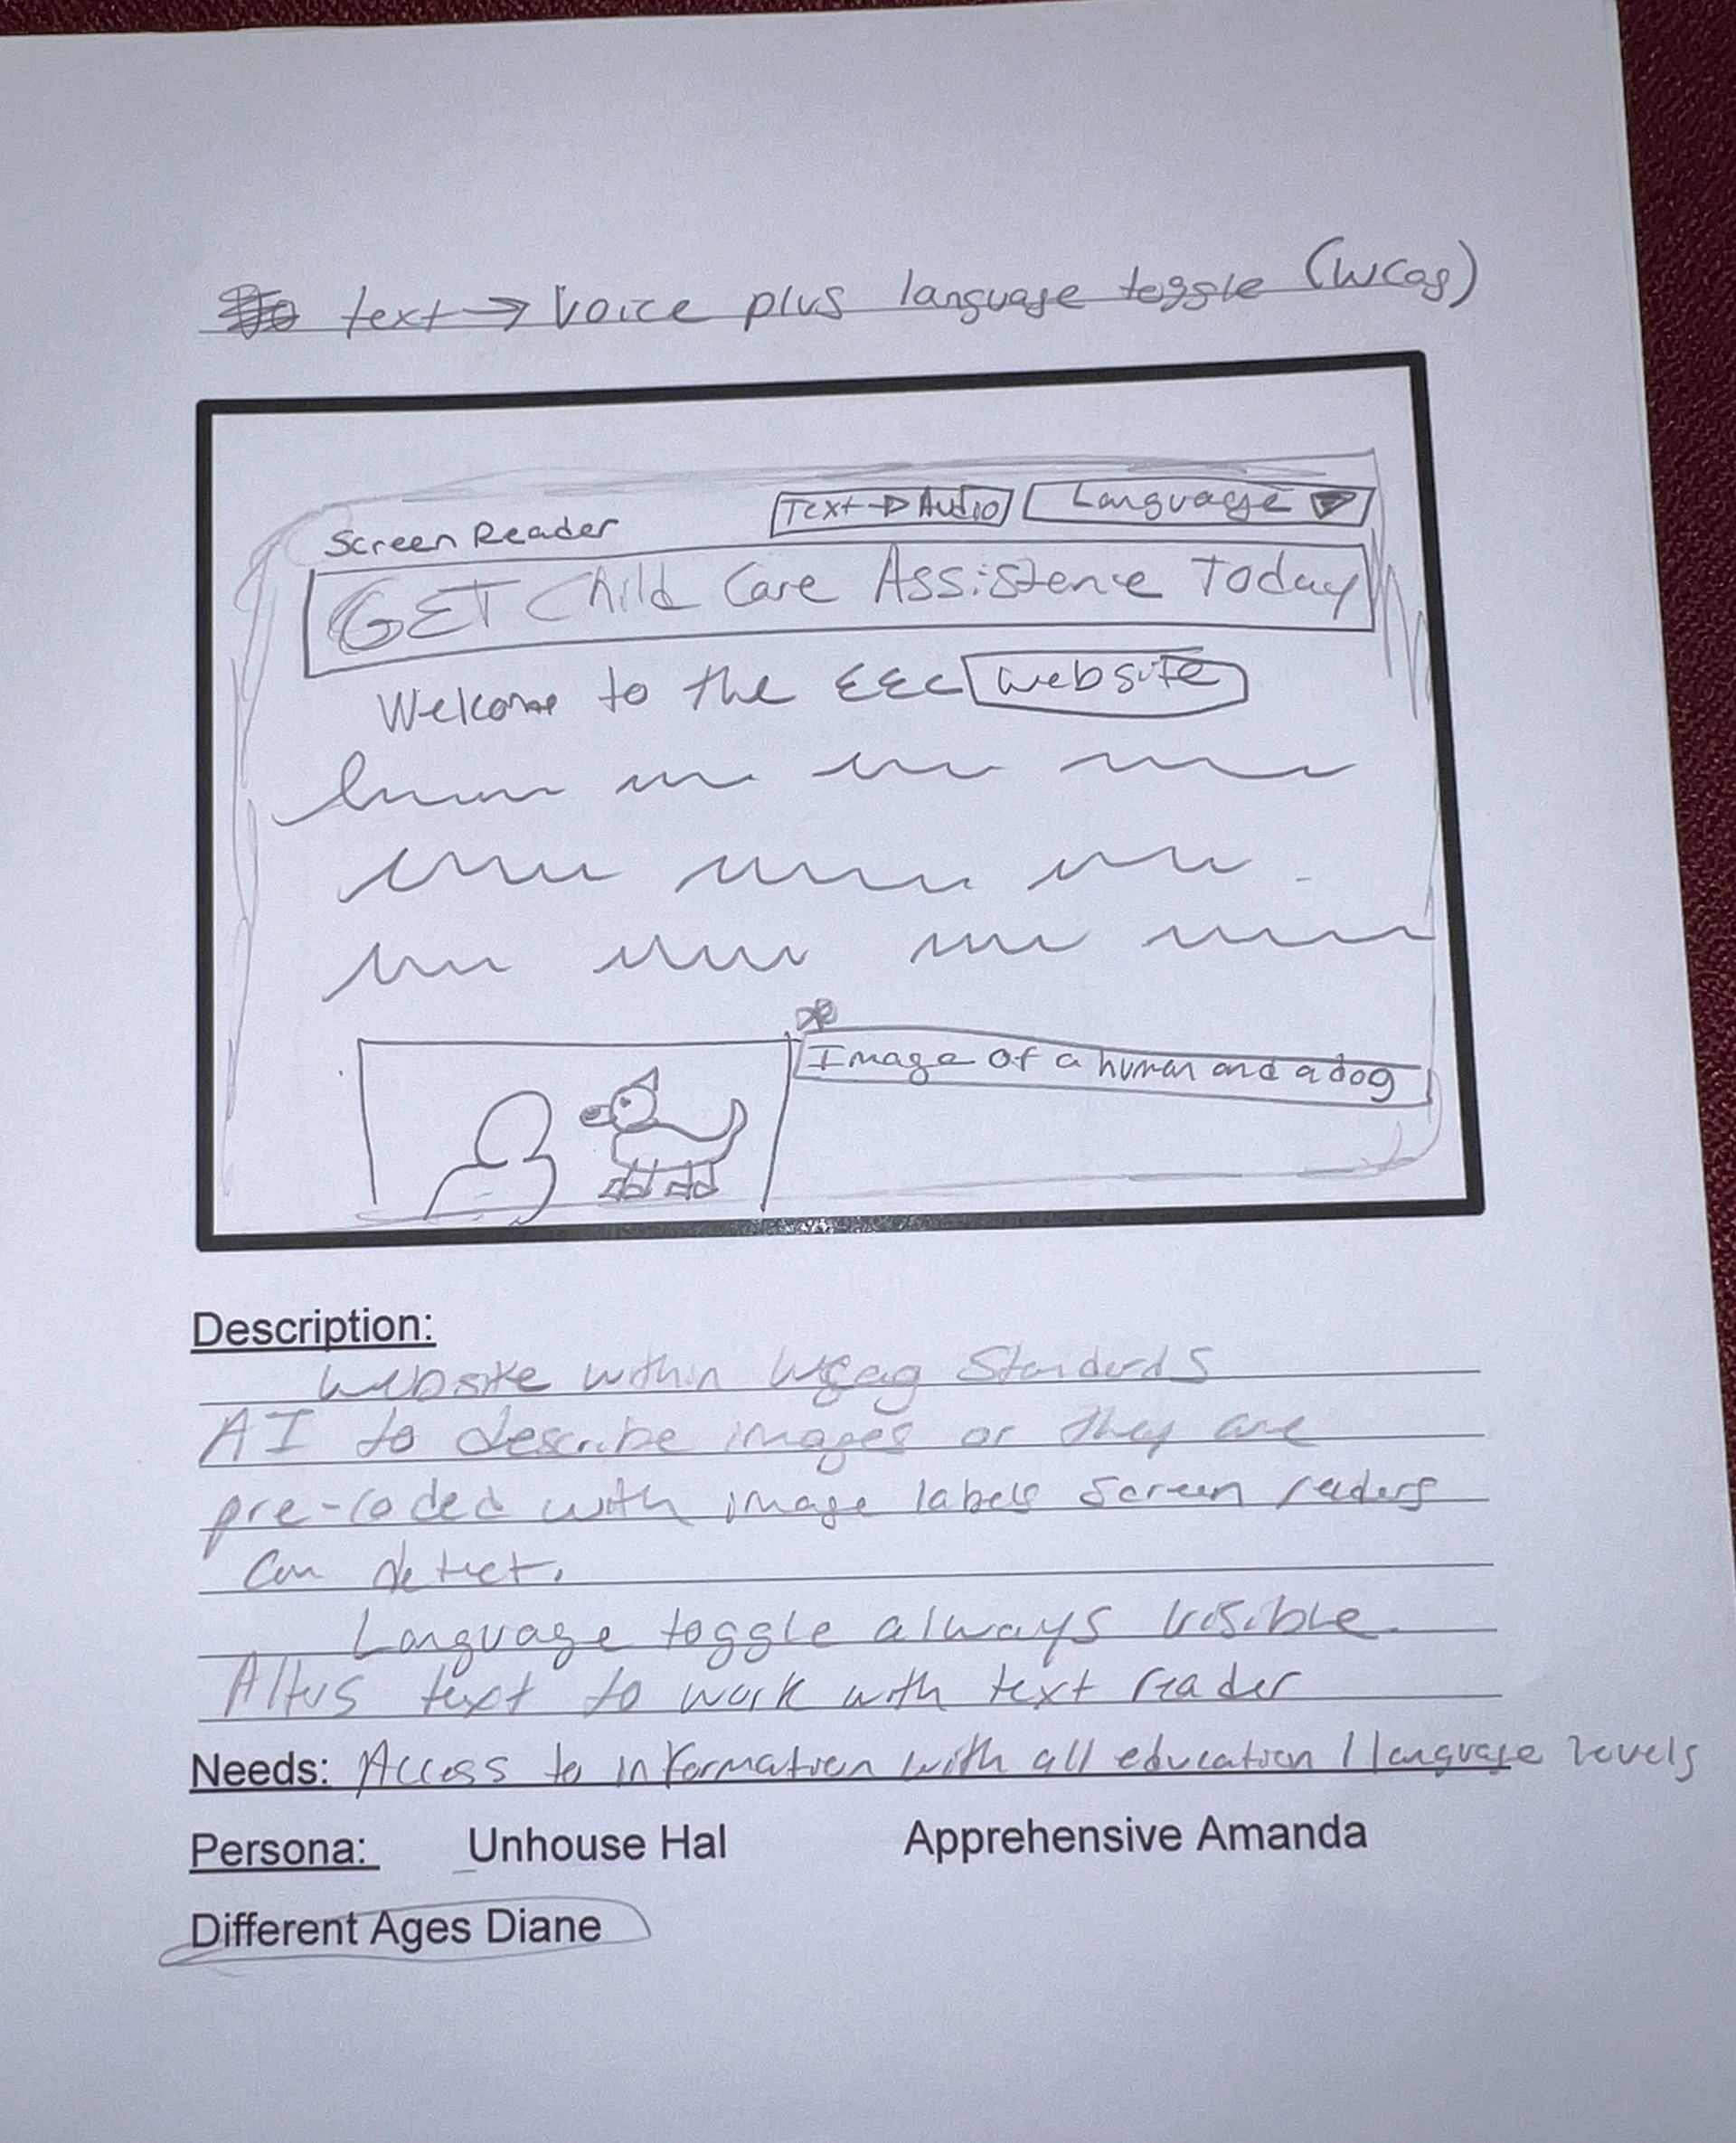 text → Voice plus language toggle (WCag)
Screen Reader
Text → Audio
Language
GET Child Care Assistence Today
Welcome to the EEC website
Image of a human and a dog
Description:
Website within Wcag Standards
AI to describe images or they are
pre-coded with image labels screen readers
Can detect.
Language toggle always visible.
text to work with text reader
Needs: Access to information with all education / language levels
Persona: Unhouse Hal Apprehensive Amanda
Different Ages Diane